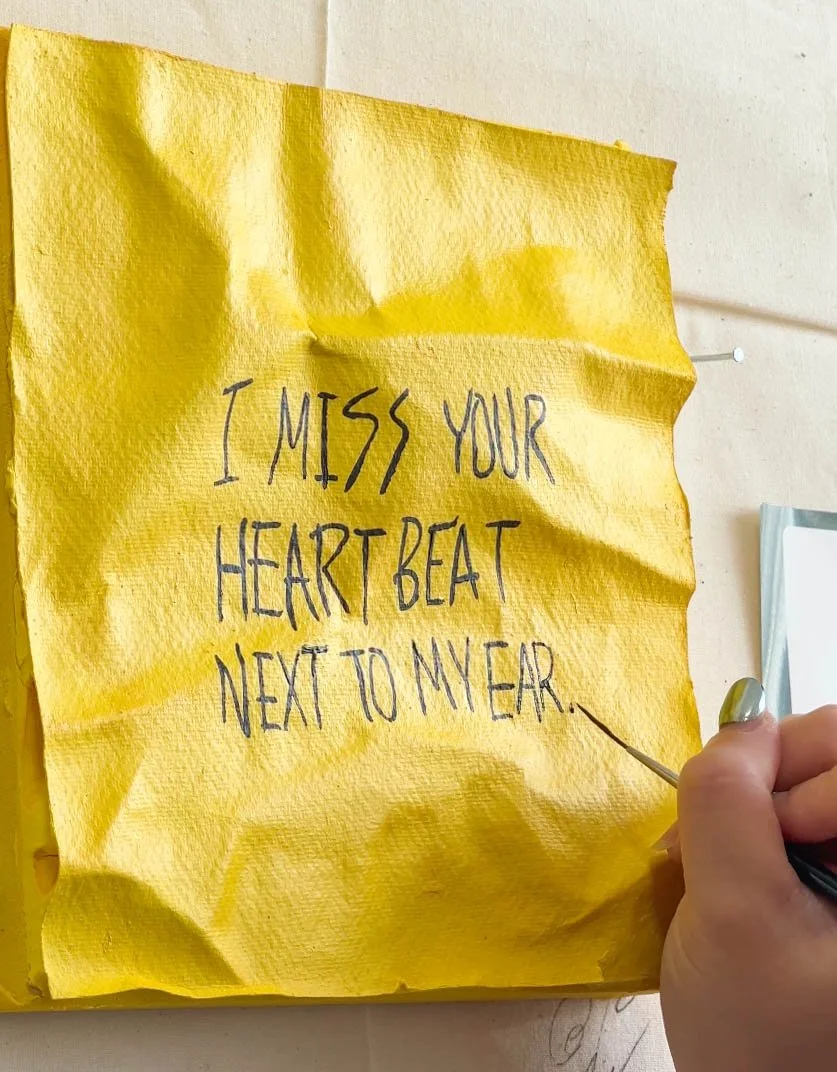 I MISS YOUR
HEARTBEAT
NEXT TO MY EAR.